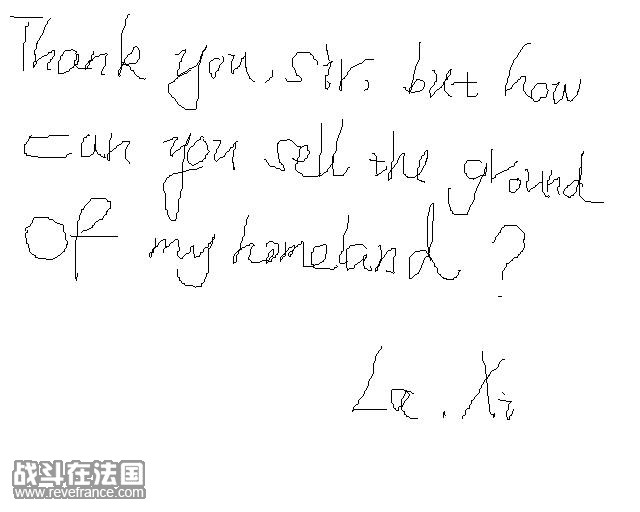 Thank you, sir, but how
can you sell the ground
Of my homeland ?
La . Xi
战斗在法国
www.revefrance.com